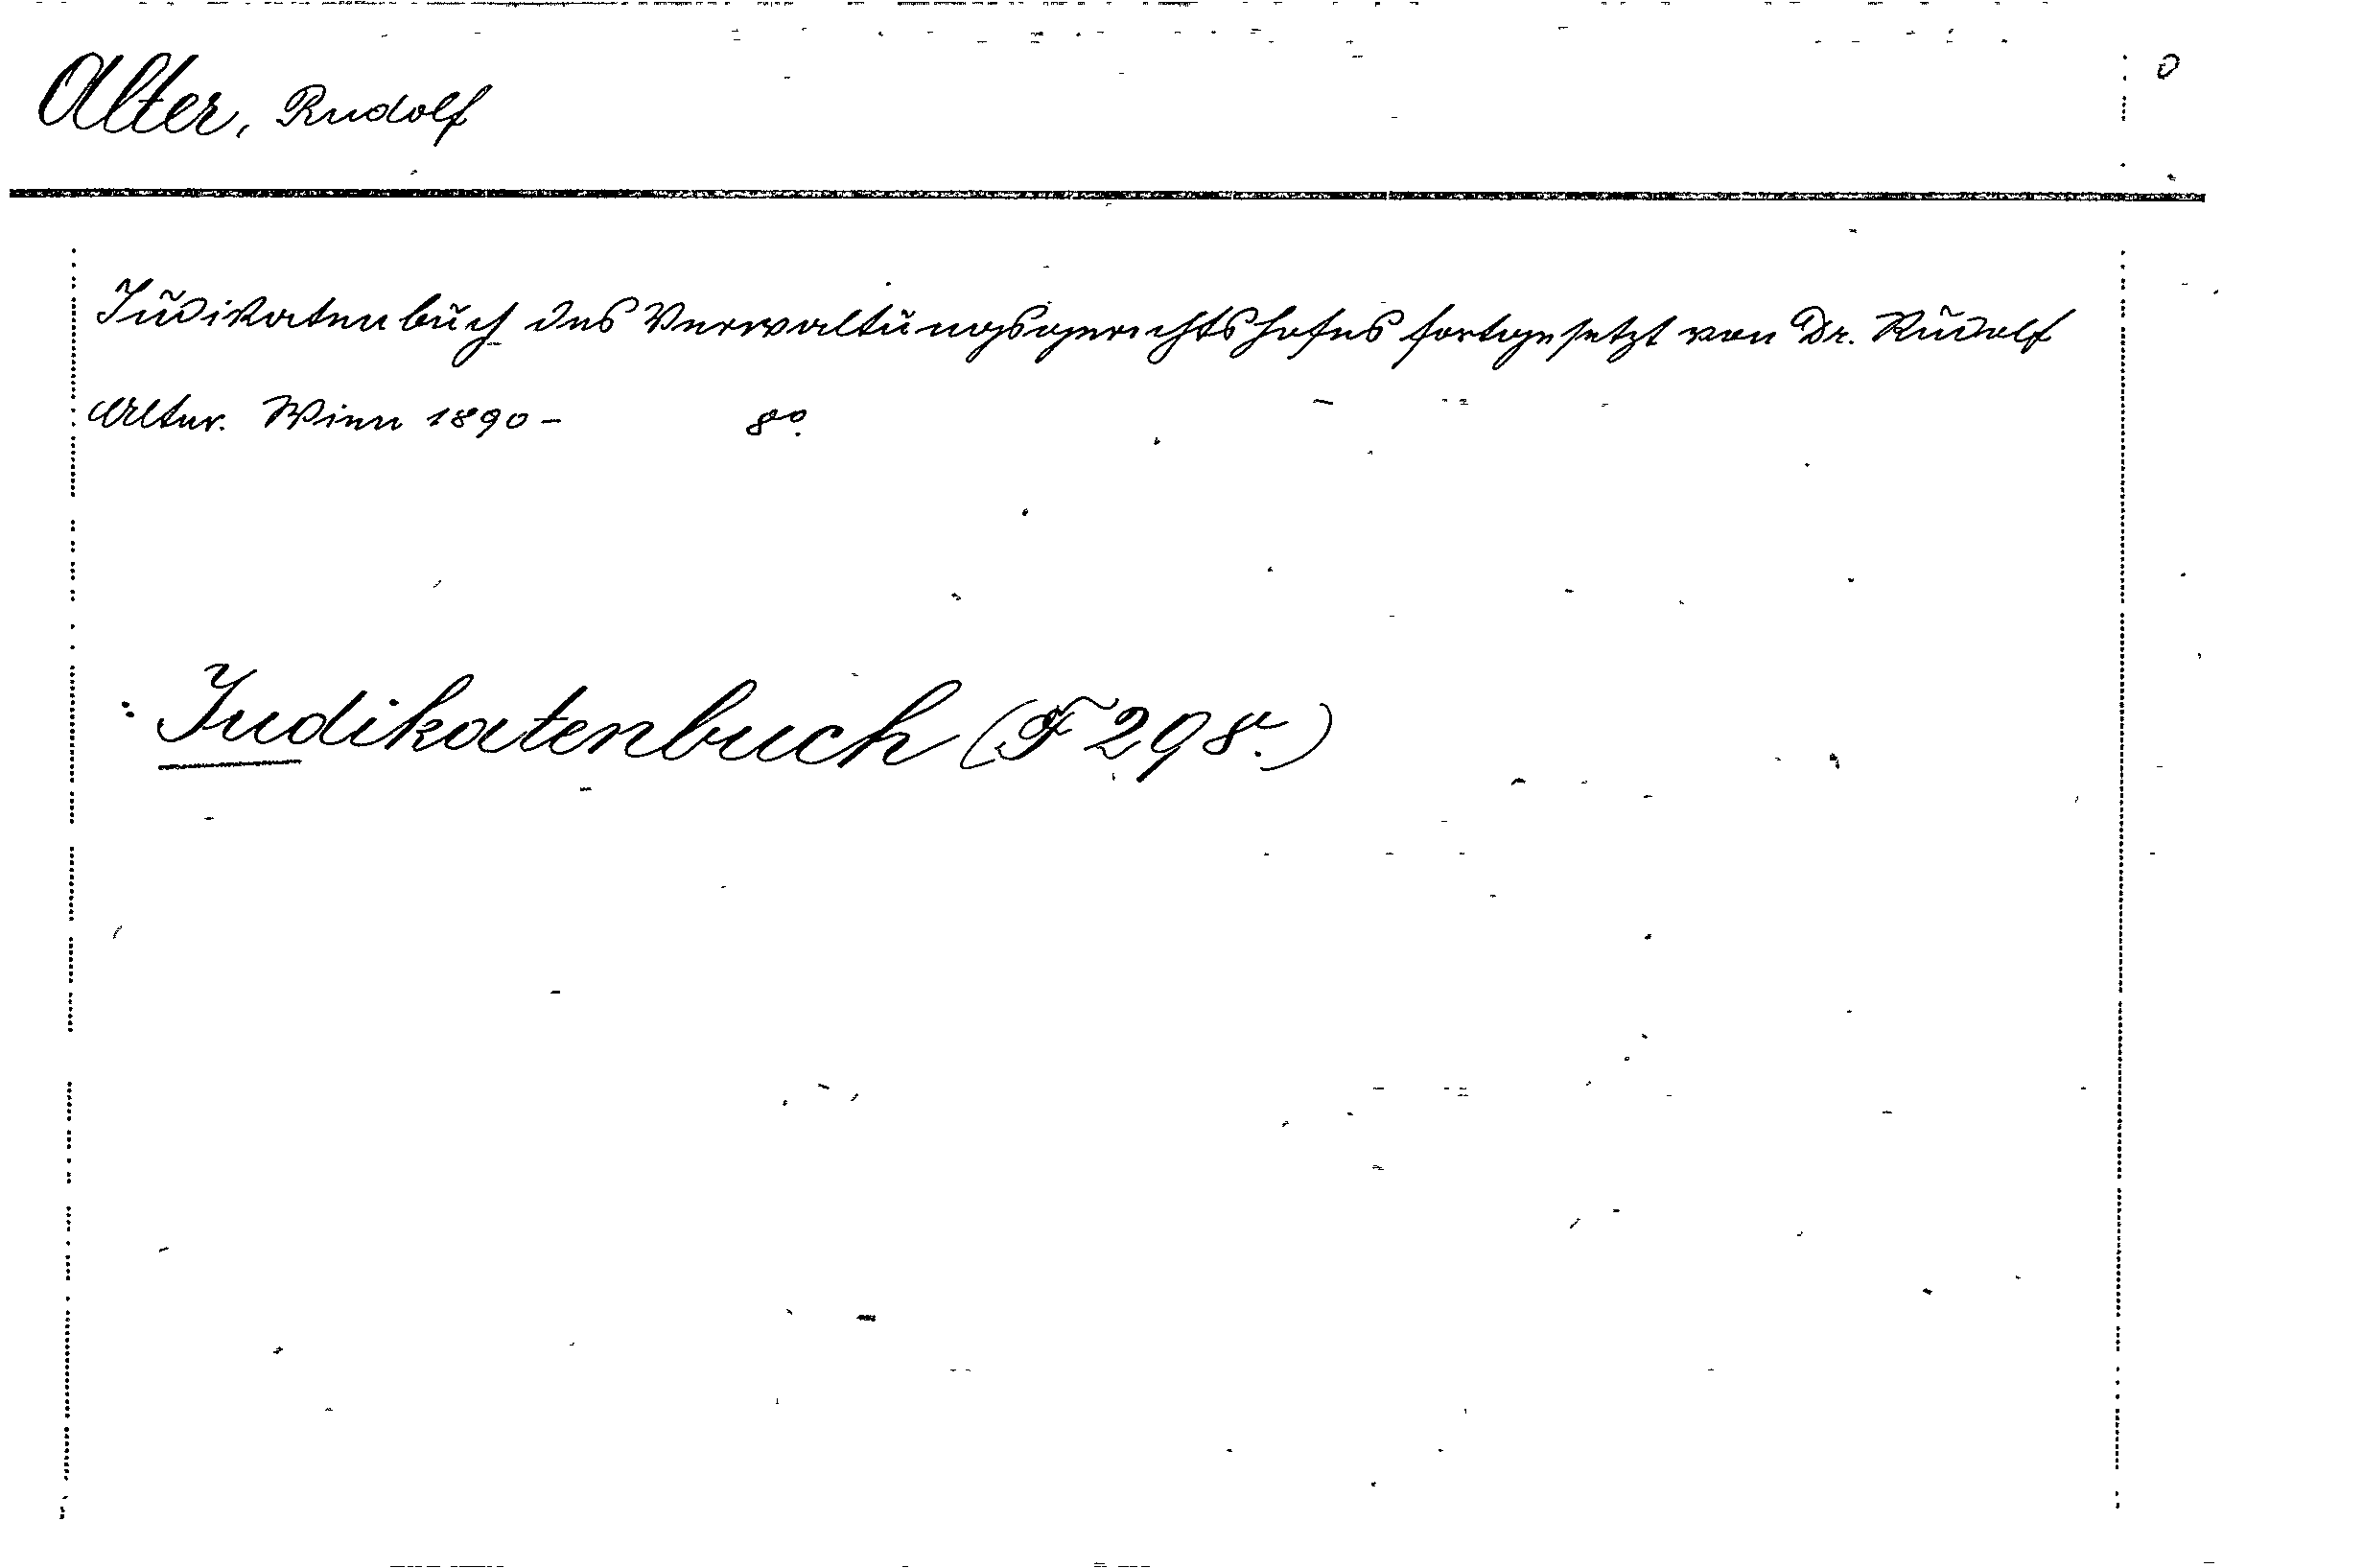 Alter, Rudolf
Judikatenbuch des Verwaltungsgerichtshofes fortgesetzt von Dr. Rudolf
Alter. Wien 1890- 8°.
: Judikatenbuch (F 298.)